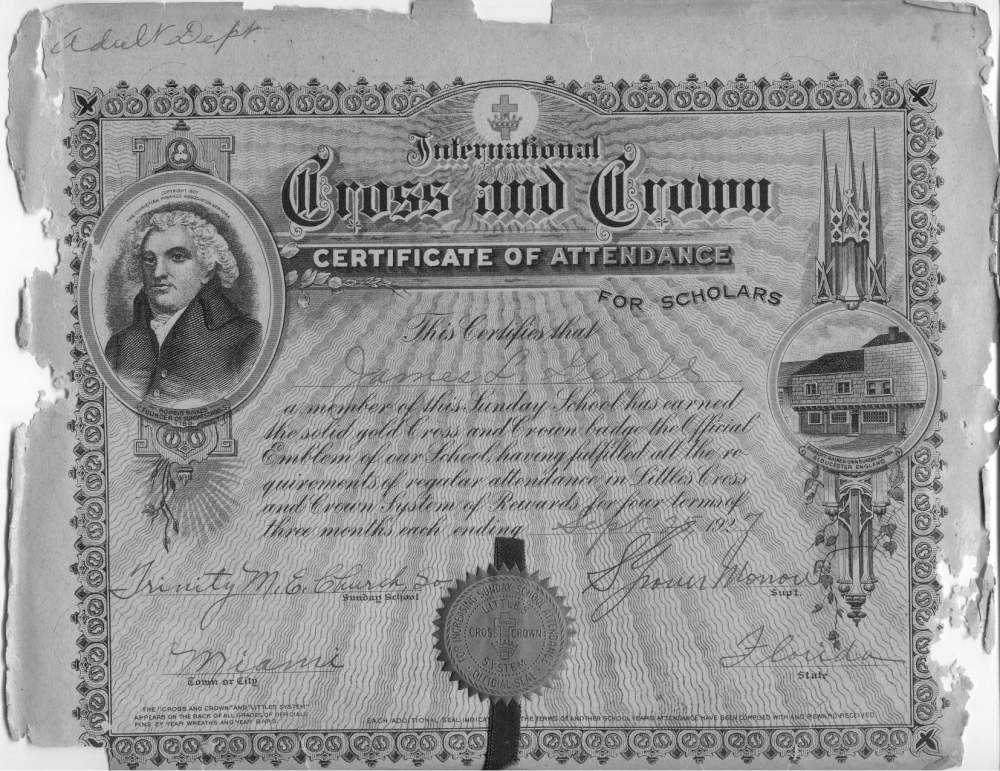 Adult Dept.
International
Cross and Crown
CERTIFICATE OF ATTENDANCE
FOR SCHOLARS
This Certifies that
James L.
a member of this Sunday School has earned
the solid gold Cross and Crown badge the Official
Emblem of our School, having fulfilled all the re-
quirements of regular attendance in Littles Cross
and Crown System of Rewards for four terms of
three months each ending Sept. 1927
Trinity M. E. Church, So
Sunday School
Supt.
Miami
Town or City
Florida
State
FOUNDER OF SUNDAY SCHOOLS
GLOUCESTER ENGLAND
FOR INCREASING SUNDAY SCHOOL ATTENDANCE
LITTLE'S
CROSS CROWN
SYSTEM
THE "CROSS AND CROWN" AND "LITTLES SYSTEM"
APPEARS ON THE BACK OF ALL GRADES OF OFFICIAL
PINS, BY YEAR WREATHS AND YEAR BARS.
EACH ADDITIONAL SEAL THE TERMS OF ANOTHER SCHOOL YEARS ATTENDANCE HAVE BEEN COMPLIED WITH AND REWARD RECEIVED.